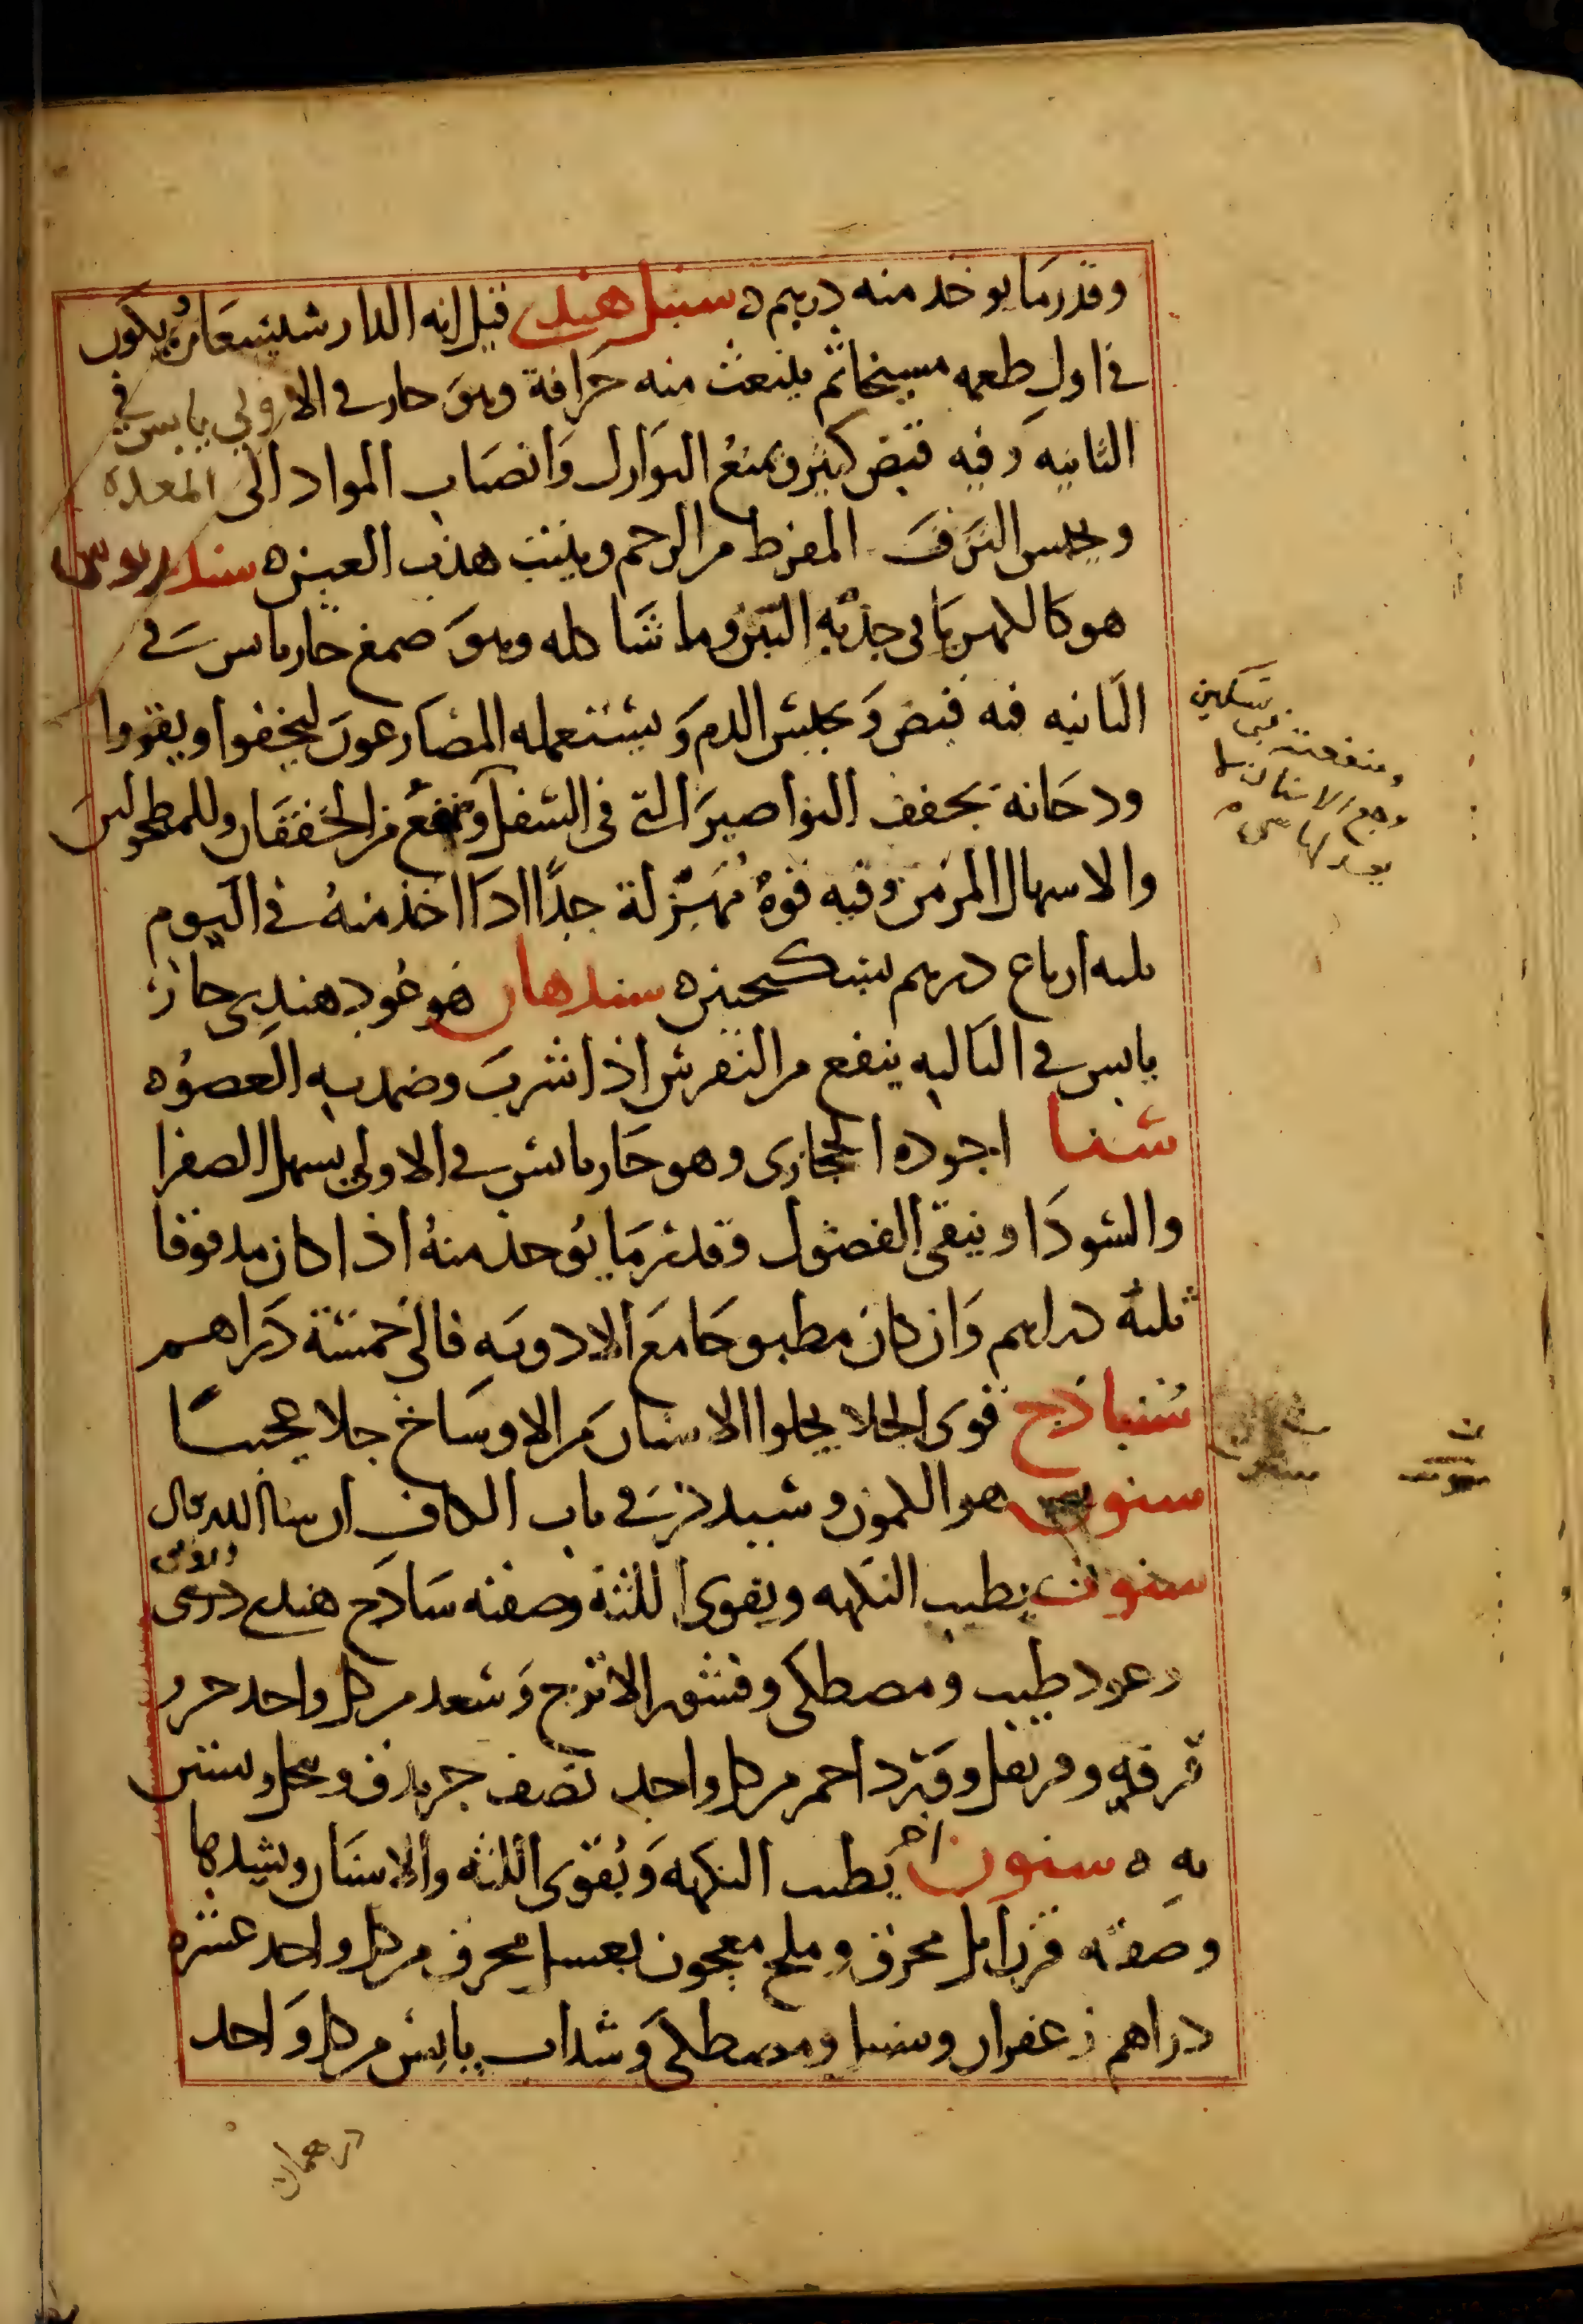 وقدر ما يوخد منه درهم ه سنبل هندى قيل انه الدار شيشعان يكون
في اول طعمه مسيخا ثم ينبعث منه حرافة وهو حار في الاولي يابس في
الثانيه وفيه قبض كبير ويمنع النوازل وانصاب المواد الى المعدة
ويحبس النزف المفرط من الرحم وينبت هدب العين ه سندروس
هو كالكهربا في جذبه التبن وما شا كله وهو صمغ حار يابس في
الثانيه فيه قبض ويحبس الدم ويستعمله المصارعون ليخفوا ويقووا
ودخانه يجفف النواصير التي في السفل وينفع من الخفقان وللمطحولين
والاسهال المزمن وفيه قوة مهزلة جدا ادا اخذ منه في اليوم
ثلثه ارباع درهم بسكنجبين ه سندهان هو عود هندى حار
يابس في الثالثه ينفع من النقرس اذا شرب وضمد به العضو ه
سنا اجوده الحجازى وهو حار يابس في الاولي يسهل الصفرا
والسودا وينقى الفضول وقدر ما يوخذ منه اذا كان مدقوقا
ثلثه دراهم وان كان مطبوخا مع الادويه فالى خمسة دراهم
سنباذج قوى الجلا يجلوا الاسنان من الاوساخ جلا عجيبا
سنوت هو الكمون وسيذكر في باب الكاف ان شا الله تعالى
سنون يطيب النكهه ويقوى اللثة وصفته ساذج هندى
وعود طيب ومصطكى وقشور الاترج وسعد من كل واحد جزو
قرفه وقرنفل وورد احمر من كل واحد نصف جزو يدق وينخل ويستن
به ه سنون اخر يطيب النكهه ويقوى اللثه والاسنان ويشدها
وصفته قرن ايل محرق وملح معجون بعسل محرق من كل واحد عشرة
دراهم زعفران وسنبل ومصطكى وسداب يابس من كل واحد
درهمان
ومنفعته في تسكين
وجع الاسنان